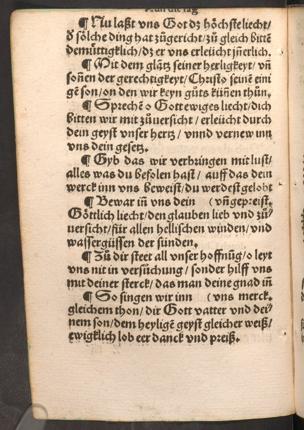 ¶ Nu laßt vns Got dz höchste liecht/
d' sölche ding hat zůgericht/ zů gleich bittē
demüttigklich/ dz er vns erleücht jn̄erlich.
¶ Mit dem glātz seiner herligkeyt/ vn̄
son̄en der gerechtigkeyt/ Christo seinē eini
gē son/ on den wir keyn gůts kün̄en thůn.
¶ Sprechē o Gott ewiges liecht/ dich
bitten wir mit zůuersicht/ erleücht durch
dein geyst vnser hertz/ vnnd vernew inn
vns dein gesetz.
¶ Gyb das wir verbringen mit lust/
alles was du befolen hast/ auff das dein
werck inn vns beweist/ du werdest gelobt
¶ Bewar in̄ vns dein (vn̄ gepreist.
Göttlich liecht/ den glauben lieb vnd zů-
uersicht/ für allen hellischen winden/ vnd
wassergüssen der sünden.
¶ Zů dir steet all vnser hoffnūg/ o leyt
vns nit in versůchung/ sonder hilff vns
mit deiner sterck/ das man deine gnad in̄
¶ So singen wir inn (vns merck.
gleichem thon/ dir Gott vatter vnd dei-
nem son/ dem heyligē geyst gleicher weiß/
ewigklich lob eer danck vnd preiß.